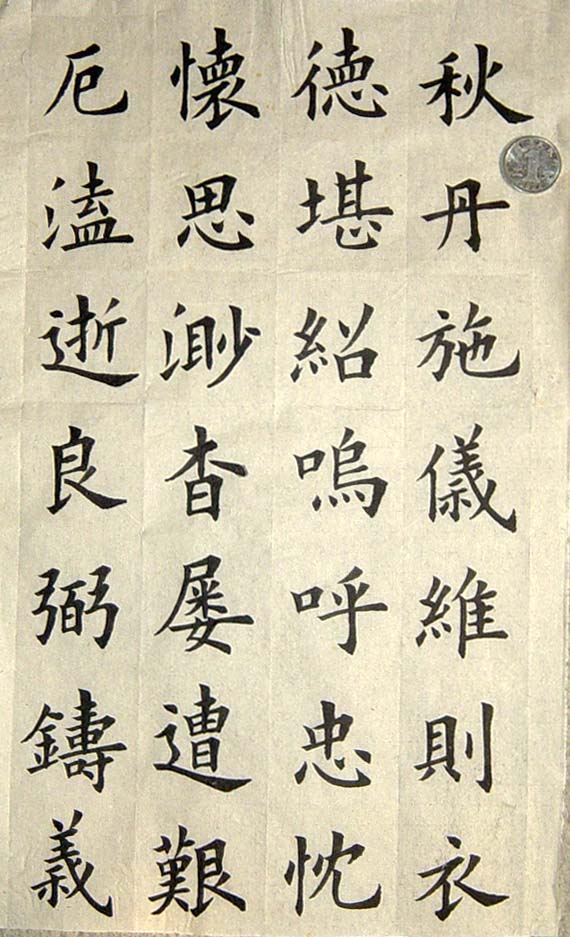 秋丹施儀維則衣
德堪紹嗚呼忠忱
懷思渺杳屡遭艱
厄溘逝良弼鑄義